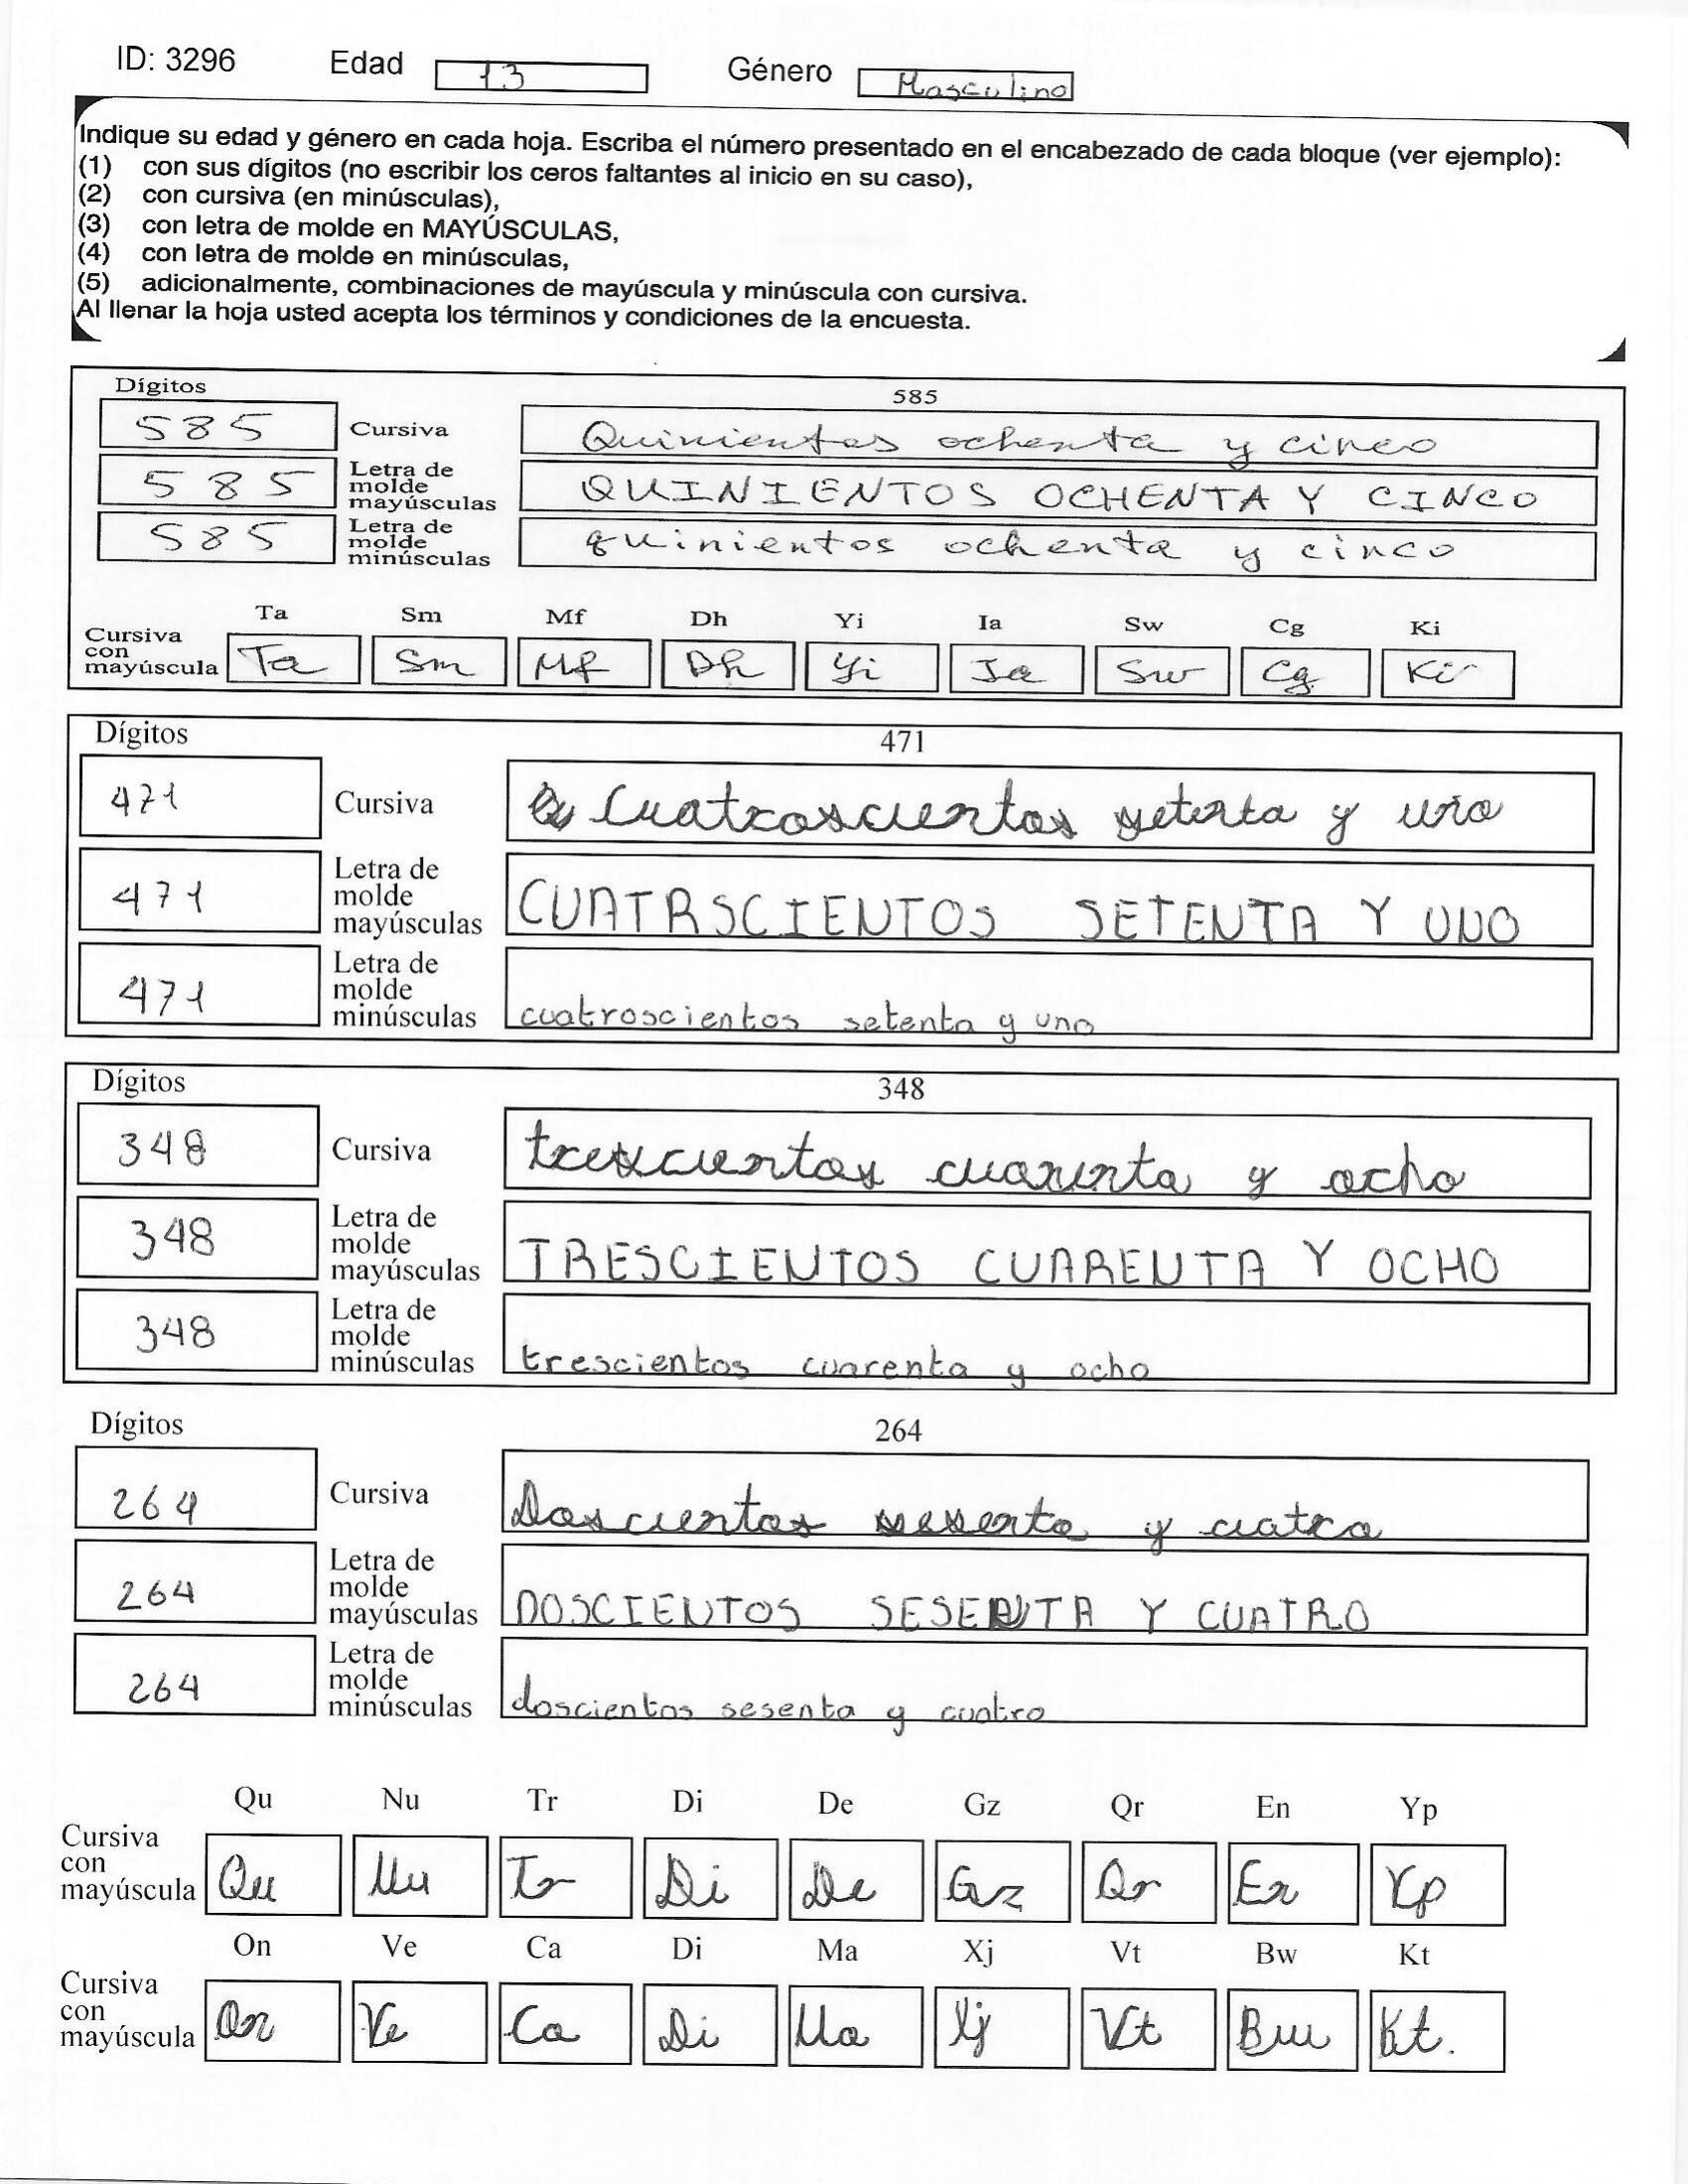 ID: 3296 Edad 13 Género Masculino
Indique su edad y género en cada hoja. Escriba el número presentado en el encabezado de cada bloque (ver ejemplo):
(1) con sus dígitos (no escribir los ceros faltantes al inicio en su caso),
(2) con cursiva (en minúsculas),
(3) con letra de molde en MAYÚSCULAS,
(4) con letra de molde en minúsculas,
(5) adicionalmente, combinaciones de mayúscula y minúscula con cursiva.
Al llenar la hoja usted acepta los términos y condiciones de la encuesta.
Dígitos 585
585 Cursiva Quinientos ochenta y cinco
585 Letra de molde mayúsculas QUINIENTOS OCHENTA Y CINCO
585 Letra de molde minúsculas quinientos ochenta y cinco
Ta Sm Mf Dh Yi Ia Sw Cg Ki
Cursiva con mayúscula Ta Sm Mf Dh Yi Ia Sw Cg Ki
Dígitos 471
471 Cursiva Cuatroscientos setenta y uno
471 Letra de molde mayúsculas CUATRSCIENTOS SETENTA Y UNO
471 Letra de molde minúsculas cuatroscientos setenta y uno
Dígitos 348
348 Cursiva trescientos cuarenta y ocho
348 Letra de molde mayúsculas TRESCIENTOS CUARENTA Y OCHO
348 Letra de molde minúsculas trescientos cuarenta y ocho
Dígitos 264
264 Cursiva Doscientos sesenta y cuatro
264 Letra de molde mayúsculas DOSCIENTOS SESENTA Y CUATRO
264 Letra de molde minúsculas doscientos sesenta y cuatro
Qu Nu Tr Di De Gz Qr En Yp
Cursiva con mayúscula Qu Nu Tr Di De Gz Qr En Yp
On Ve Ca Di Ma Xj Vt Bw Kt
Cursiva con mayúscula On Ve Ca Di Ma Xj Vt Bw Kt.